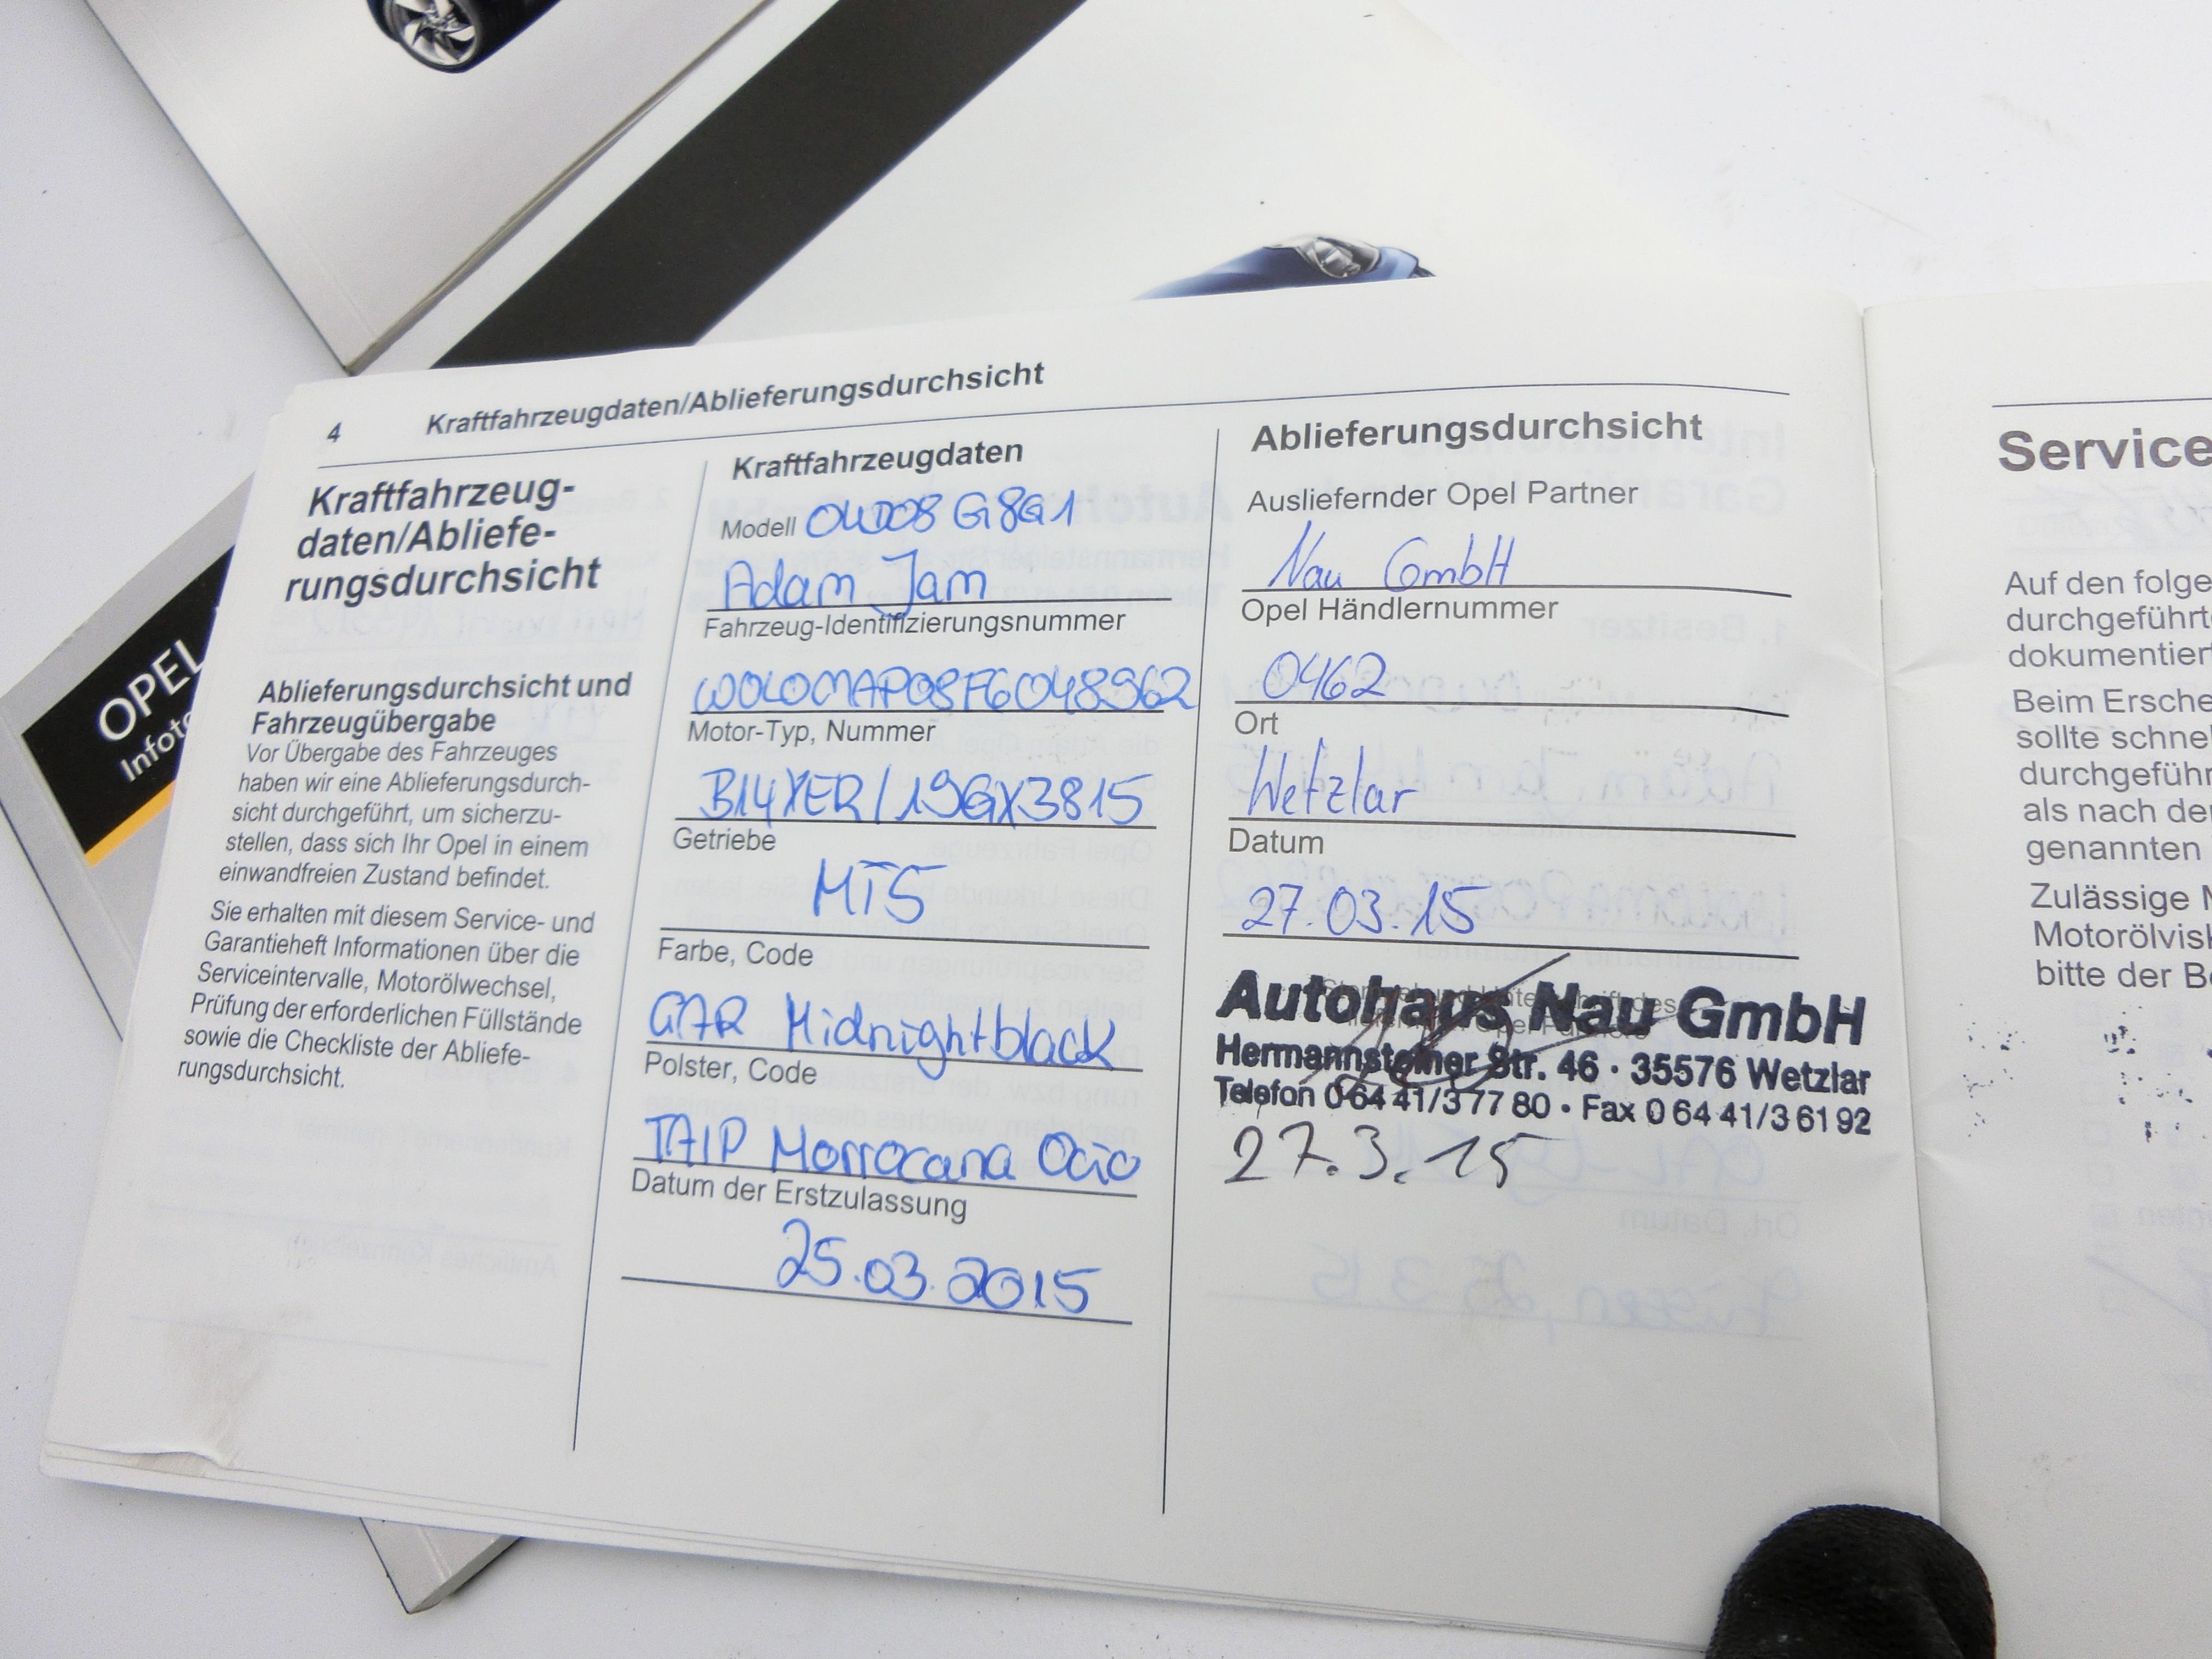 OPEL
Infota
4 Kraftfahrzeugdaten/Ablieferungsdurchsicht
Kraftfahrzeug-
daten/Abliefe-
rungsdurchsicht
Ablieferungsdurchsicht und
Fahrzeugübergabe
Vor Übergabe des Fahrzeuges
haben wir eine Ablieferungsdurch-
sicht durchgeführt, um sicherzu-
stellen, dass sich Ihr Opel in einem
einwandfreien Zustand befindet.
Sie erhalten mit diesem Service- und
Garantieheft Informationen über die
Serviceintervalle, Motorölwechsel,
Prüfung der erforderlichen Füllstände
sowie die Checkliste der Abliefe-
rungsdurchsicht.
Kraftfahrzeugdaten
Modell 0W08 G8G1
Adam Jam
Fahrzeug-Identifizierungsnummer
W0L0MAP08F6048962
Motor-Typ, Nummer
B14XER/19GX3815
Getriebe
MT5
Farbe, Code
GAR Midnightblack
Polster, Code
TAIP Morrocana Ocio
Datum der Erstzulassung
25.03.2015
Ablieferungsdurchsicht
Ausliefernder Opel Partner
Nau GmbH
Opel Händlernummer
0462
Ort
Wetzlar
Datum
27.03.15
Autohaus Nau GmbH
Hermannsteiner Str. 46 · 35576 Wetzlar
Telefon 0 64 41/3 77 80 • Fax 0 64 41/3 61 92
27.3.15
Service
Auf den folge
durchgeführt
dokumentier
Beim Ersche
sollte schne
durchgeführ
als nach de
genannten
Zulässige
Motorölvisk
bitte der B